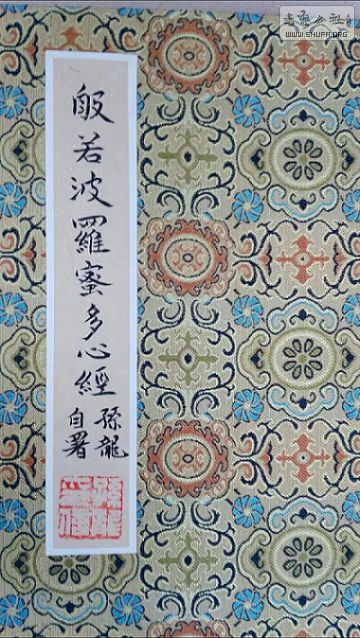 般若波羅蜜多心經
孫龍
自署
书艺公社
WWW.SHUFA.ORG